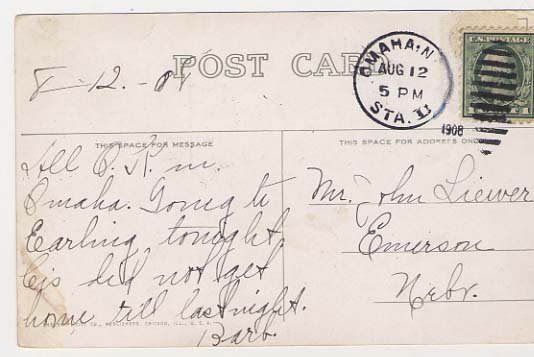 POST CAR
8-12.-09
OMAHA, N
AUG 12
5 PM
STA. B
1908
U.S. POSTAGE
THIS SPACE FOR MESSAGE
THIS SPACE FOR ADDRESS ONLY
All O.K. in
Omaha. Going to
Earling tonight
did not get
home till last night.
Barb.
CO., PUBLISHERS, CHICAGO, ILL., U.S.A.
Mr. John Liewer
Emerson
Nebr.